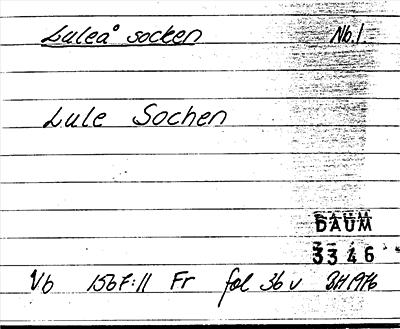 Luleå socken Nb.1
Lule Sochen
DAUM
3346
Vb 1567:11 Fr fol 36 v BH 1976